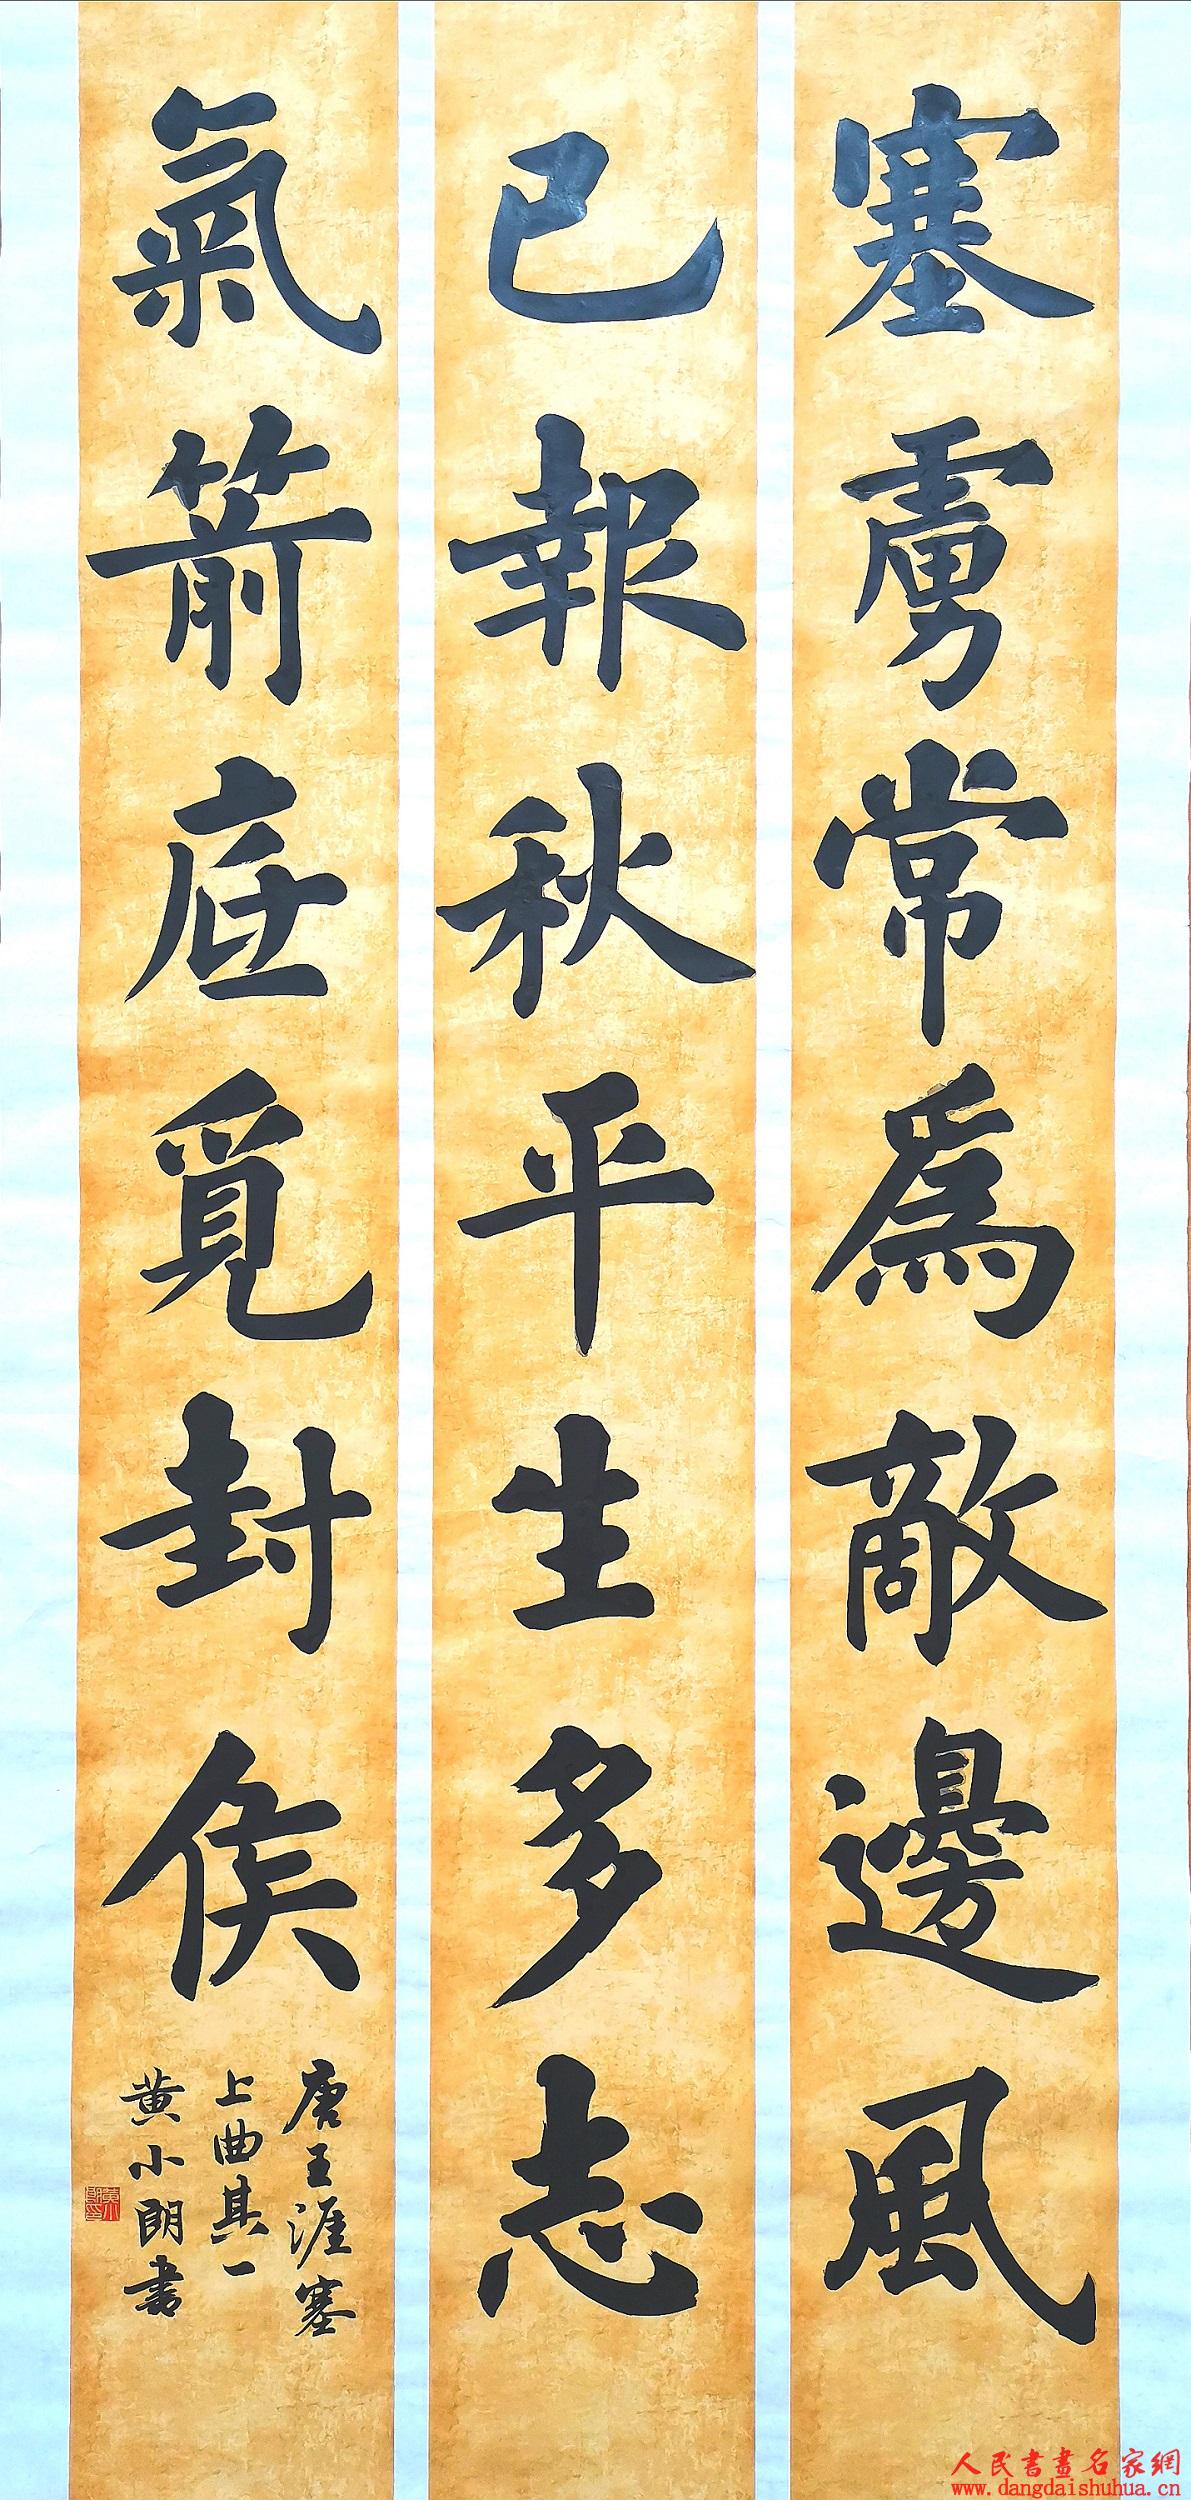 塞虜常為敵邊風
已報秋平生多志
氣箭底覓封侯
唐王涯塞
上曲其一
黄小朗書
人民書畫名家網
www.dangdaishuhua.cn